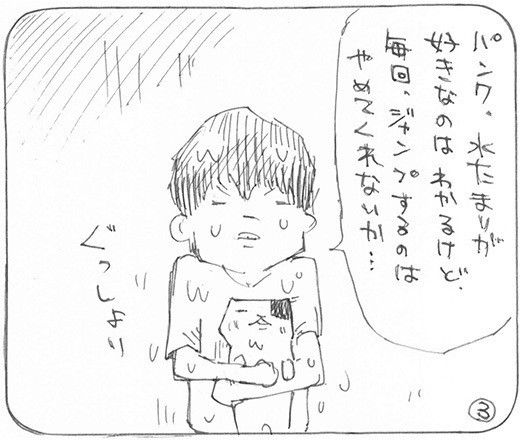 パンク。水たまりが
好きなのはわかるけど、
毎回、ジャンプするのは
やめてくれないか…
ぐっしょり
3